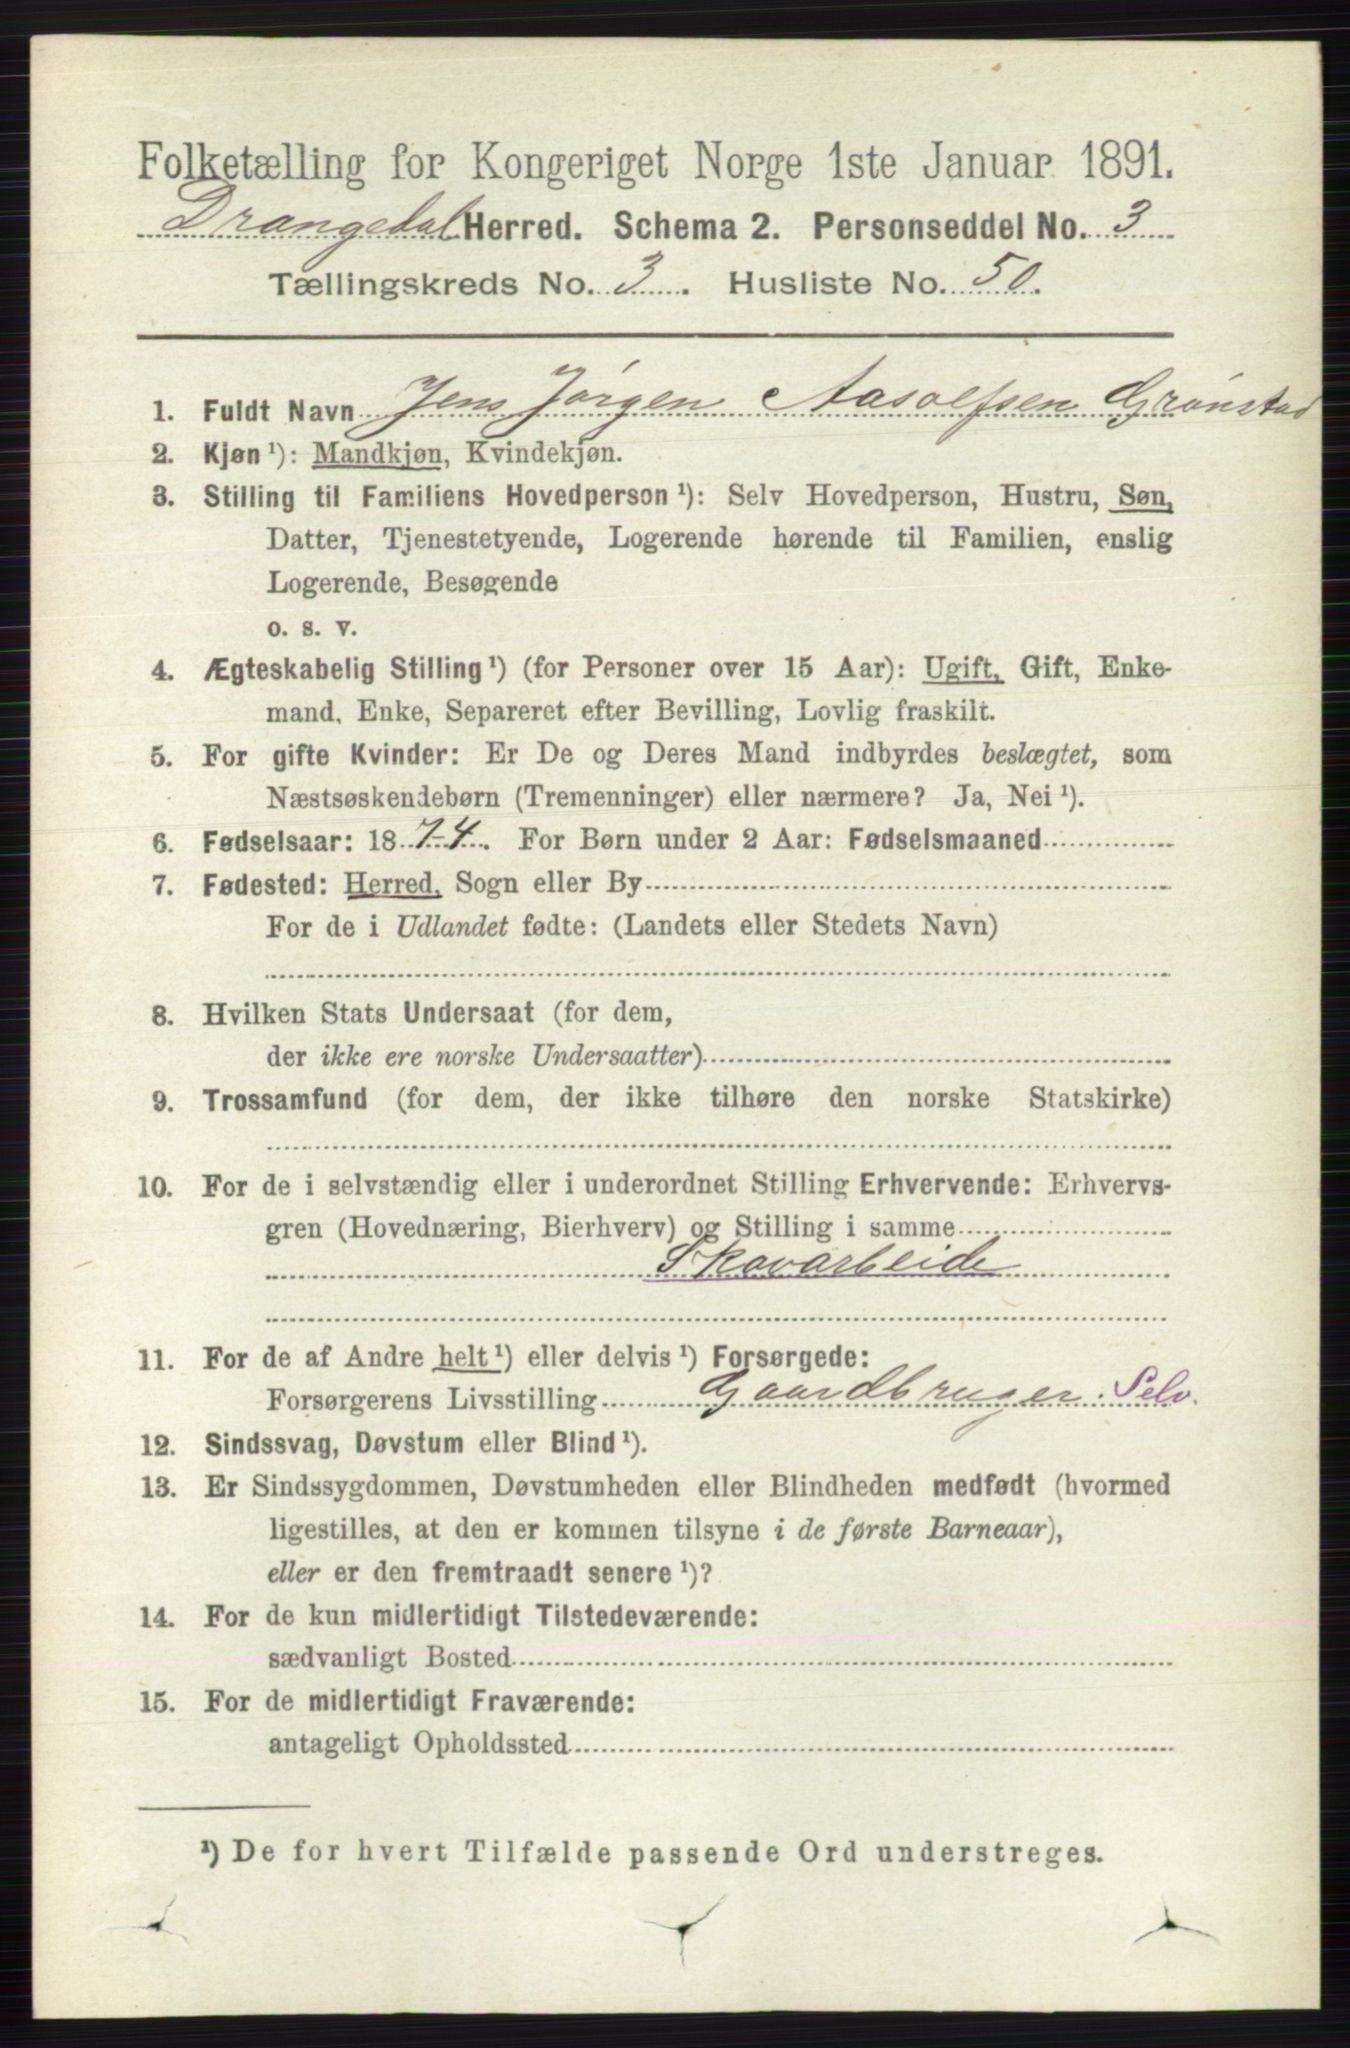 Folketælling for Kongeriget Norge 1ste Januar 1891.
Drangedal Herred. Schema 2. Personseddel No. 3
Tællingskreds No. 3. Husliste No. 50.
1. Fuldt Navn Jens Jørgen Aasolfsen Grønstad
2. Kjøn ¹): Mandkjøn, Kvindekjøn.
3. Stilling til Familiens Hovedperson ¹): Selv Hovedperson, Hustru, Søn,
Datter, Tjenestetyende, Logerende hørende til Familien, enslig
Logerende, Besøgende
o. s. v.
4. Ægteskabelig Stilling ¹) (for Personer over 15 Aar): Ugift, Gift, Enke-
mand, Enke, Separeret efter Bevilling, Lovlig fraskilt.
5. For gifte Kvinder: Er De og Deres Mand indbyrdes beslægtet, som
Næstsøskendebørn (Tremenninger) eller nærmere? Ja, Nei ¹).
6. Fødselsaar: 1874. For Børn under 2 Aar: Fødselsmaaned
7. Fødested: Herred, Sogn eller By
For de i Udlandet fødte: (Landets eller Stedets Navn)
8. Hvilken Stats Undersaat (for dem,
der ikke ere norske Undersaatter)
9. Trossamfund (for dem, der ikke tilhøre den norske Statskirke)
10. For de i selvstændig eller i underordnet Stilling Erhvervende: Erhvervs-
gren (Hovednæring, Bierhverv) og Stilling i samme
Skovarbeide
11. For de af Andre helt ¹) eller delvis ¹) Forsørgede:
Forsørgerens Livsstilling Gaardbruger. Selv.
12. Sindssvag, Døvstum eller Blind ¹).
13. Er Sindssygdommen, Døvstumheden eller Blindheden medfødt (hvormed
ligestilles, at den er kommen tilsyne i de første Barneaar),
eller er den fremtraadt senere ¹)?
14. For de kun midlertidigt Tilstedeværende:
sædvanligt Bosted
15. For de midlertidigt Fraværende:
antageligt Opholdssted
¹) De for hvert Tilfælde passende Ord understreges.